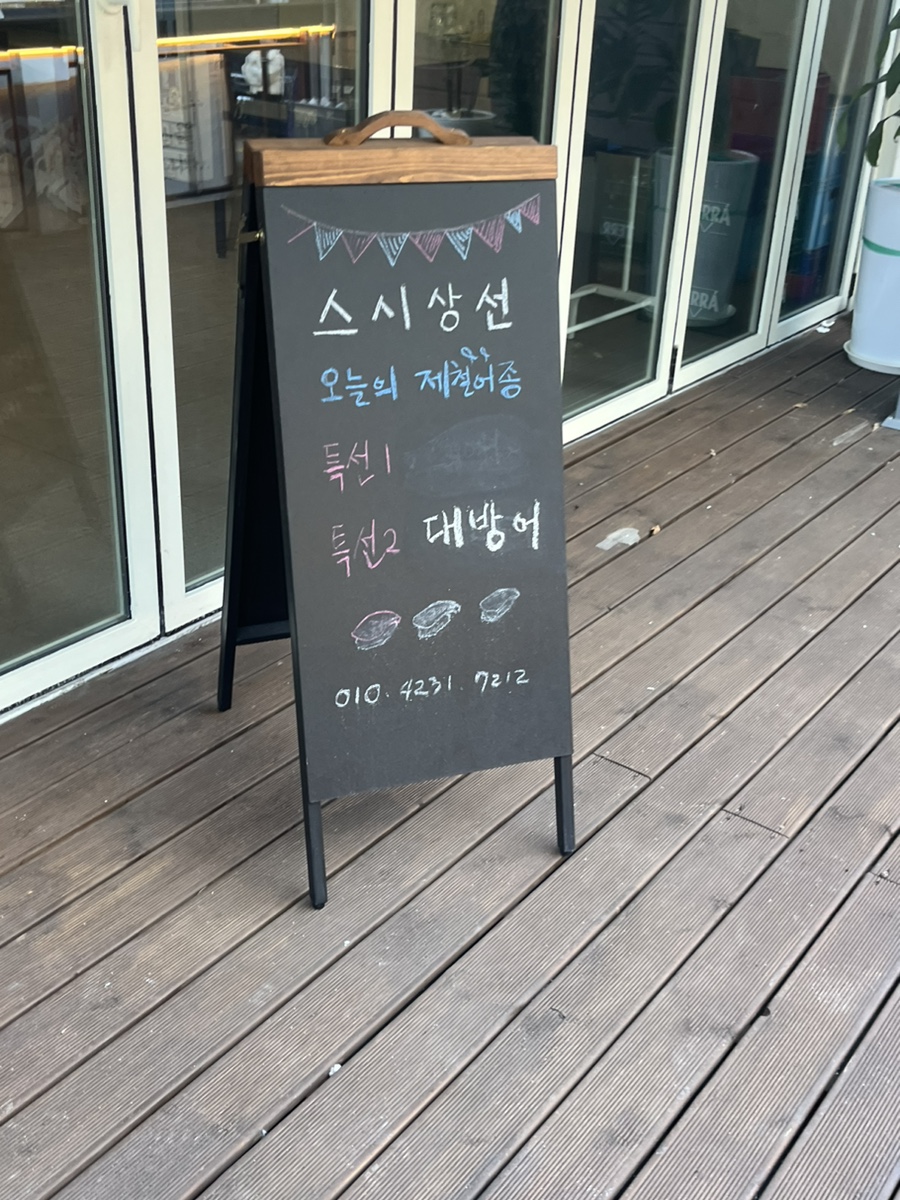 스시상선
오늘의 제철어종
특선1
특선2 대방어
010. 4231. 7212